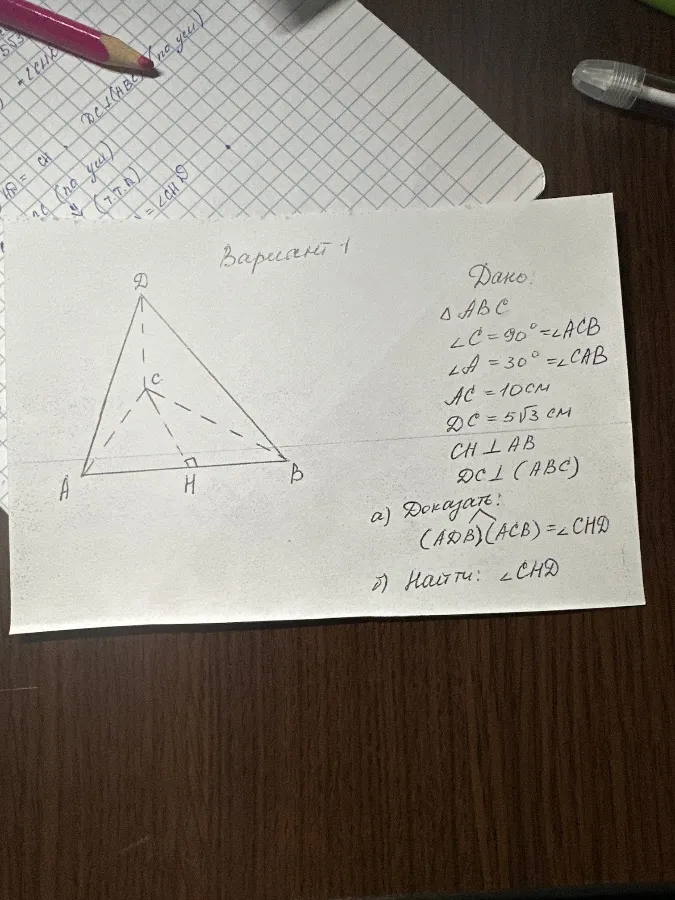 5√3
∠CHD
DC⊥(ABC) (по усл)
= CH,
(по усл)
(Т.Т.П)
= ∠CHD
Вариант 1
D
C
A
H
B
Дано:
△ ABC
∠C = 90° = ∠ACB
∠A = 30° = ∠CAB
AC = 10 см
DC = 5√3 см
CH ⊥ AB
DC ⊥ (ABC)
а) Доказать:
(ADB)(ACB) = ∠CHD
б) Найти: ∠CHD